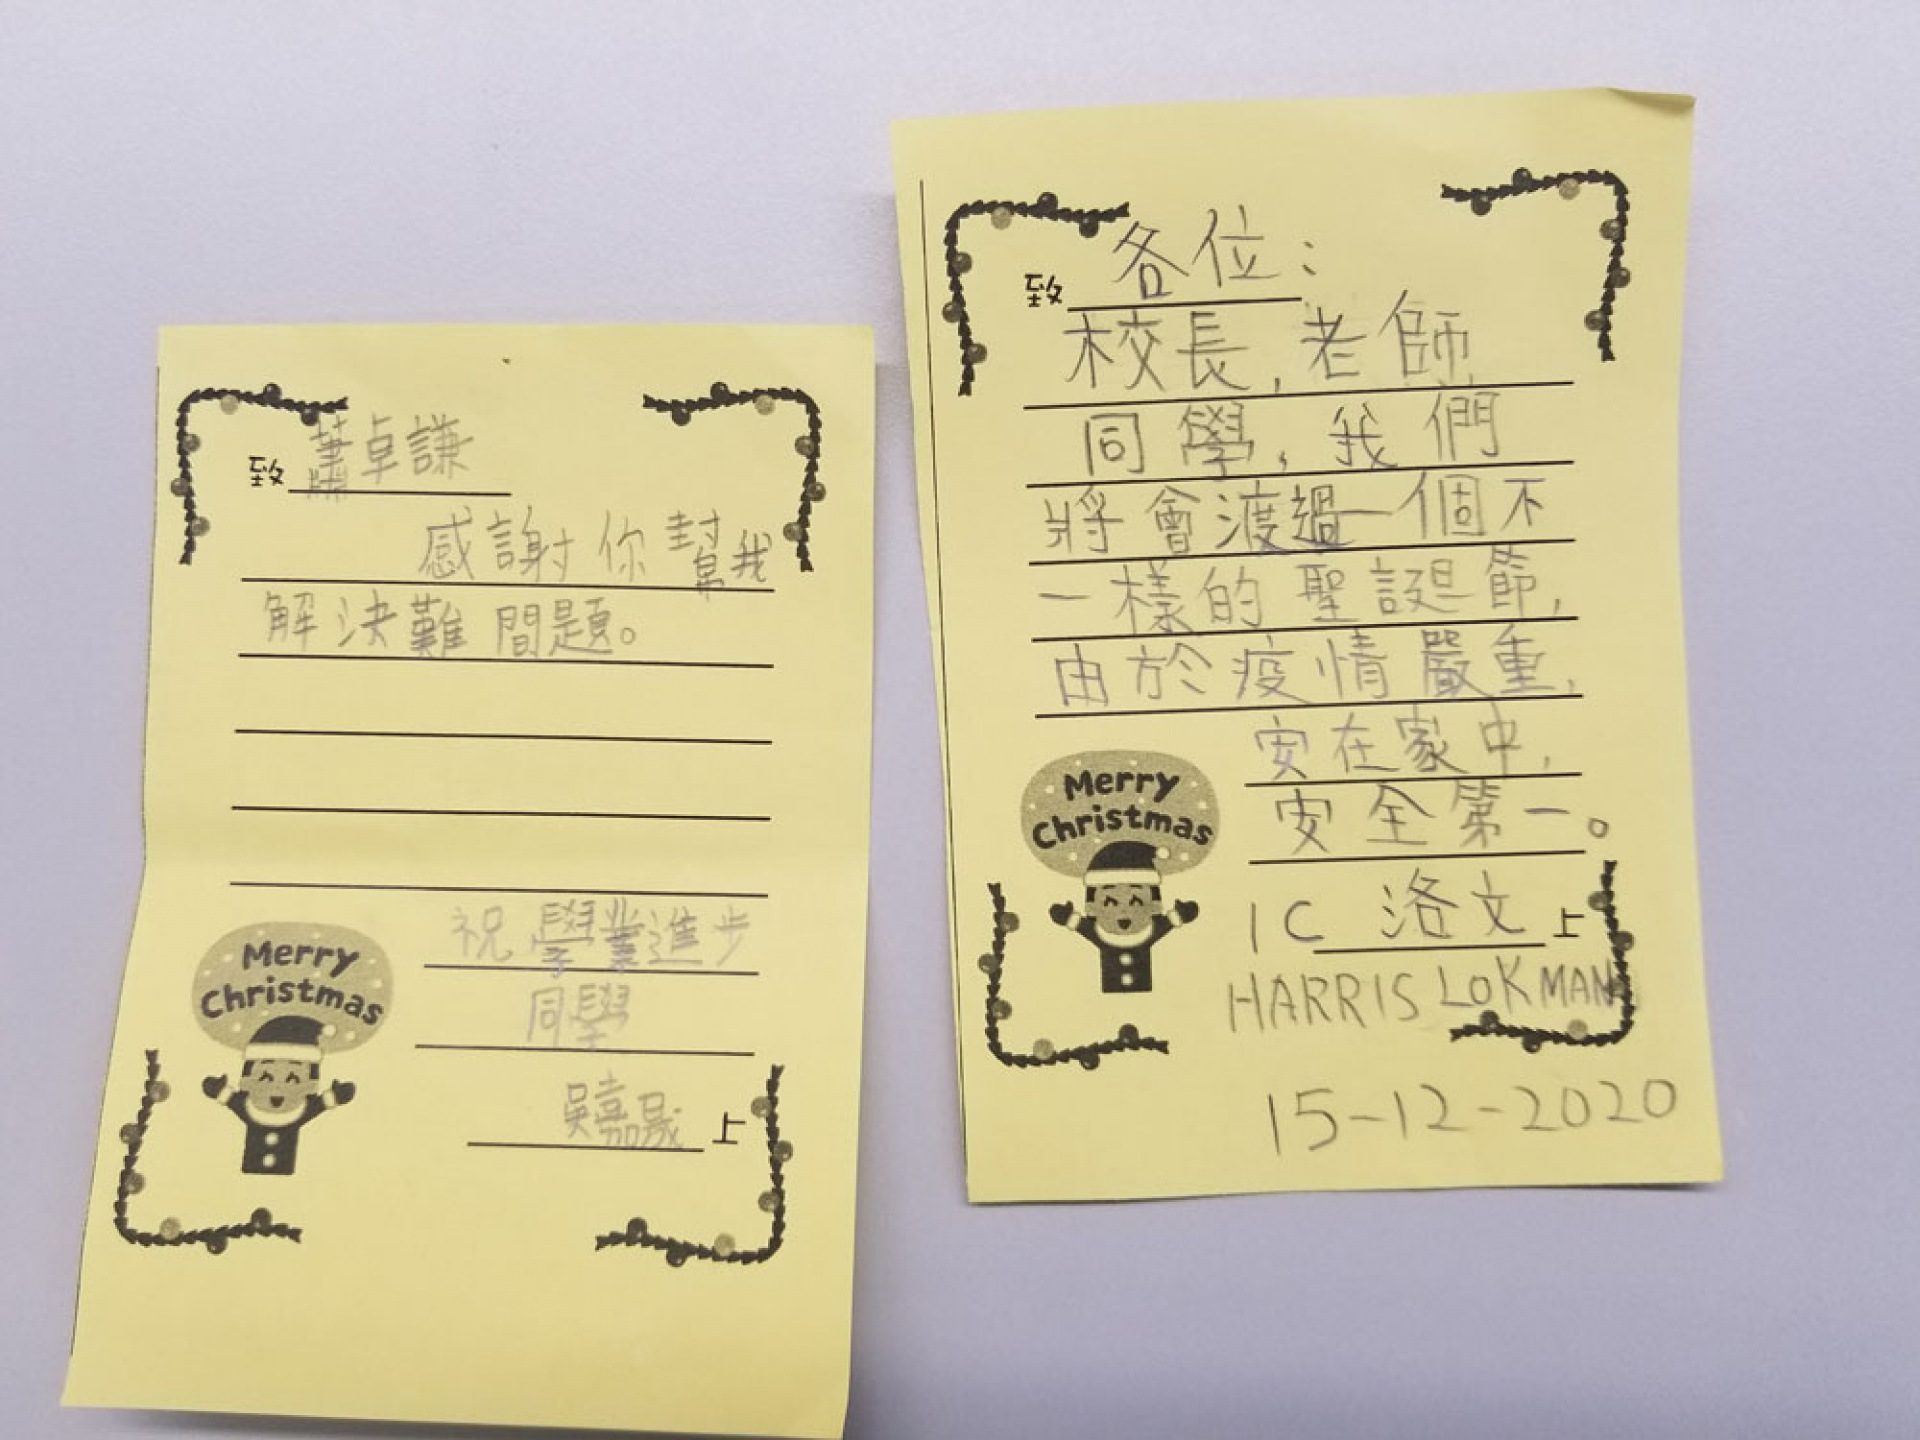 致 蕭卓謙
感謝你幫我
解決難問題。
Merry
Christmas
祝 學業進步
同學
吳嘉晟 上
致 各位：
校長,老師,
同學,我們
將會渡過一個不
一樣的聖誕節,
由於疫情嚴重,
安在家中,
安全第一。
Merry
Christmas
1C 洛文 上
HARRIS LOK MAN
15-12-2020